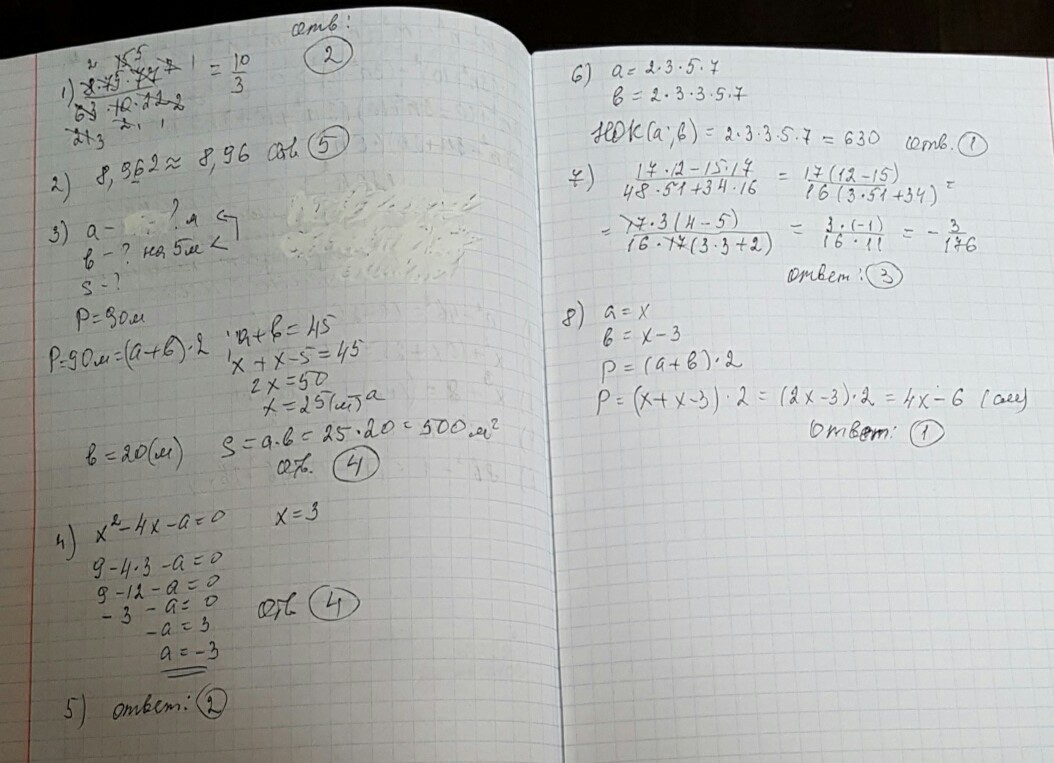 отв: 2
1) = 10/3
2) 8,962 ≈ 8,96 отв 5
3) a - ? м
в - ? на 5м <
S - ?
P = 90м
P = 90м = (a + в) · 2
a + в = 45
x + x - 5 = 45
2x = 50
x = 25 (м) a
в = 20 (м) S = a · в = 25 · 20 = 500 м²
отв. 4
4) x² - 4x - a = 0 x = 3
9 - 4·3 - a = 0
9 - 12 - a = 0
- 3 - a = 0 отв 4
- a = 3
a = -3
5) ответ: 2
6) a = 2·3·5·7
в = 2·3·3·5·7
НОК(a; в) = 2·3·3·5·7 = 630 отв. 1
7) (17·12 - 15·17)/(48·51 + 34·16) = 17(12 - 15)/16(3·51 + 34) =
= 17·3(4 - 5)/16·17(3·3 + 2) = 3·(-1)/16·11 = - 3/176
ответ: 3
8) a = x
в = x - 3
P = (a + в) · 2
P = (x + x - 3) · 2 = (2x - 3) · 2 = 4x - 6 (см)
Ответ: 1